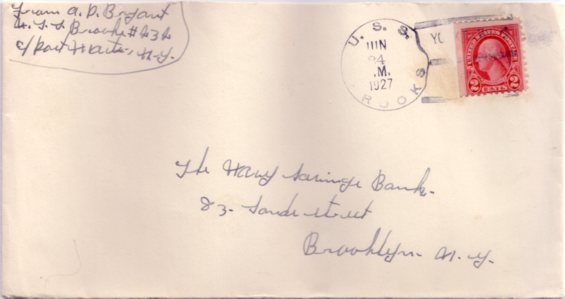 From A. D. Bryant
U.S.S. Brooks #232
c/o Post Master, N.Y.
U. S. S.
JUN
24
.M.
1927
ROOKS
YO
UNITED STATES POSTAGE
2 CENTS 2
The Navy Savings Bank.
83. Sands street
Brooklyn N.Y.